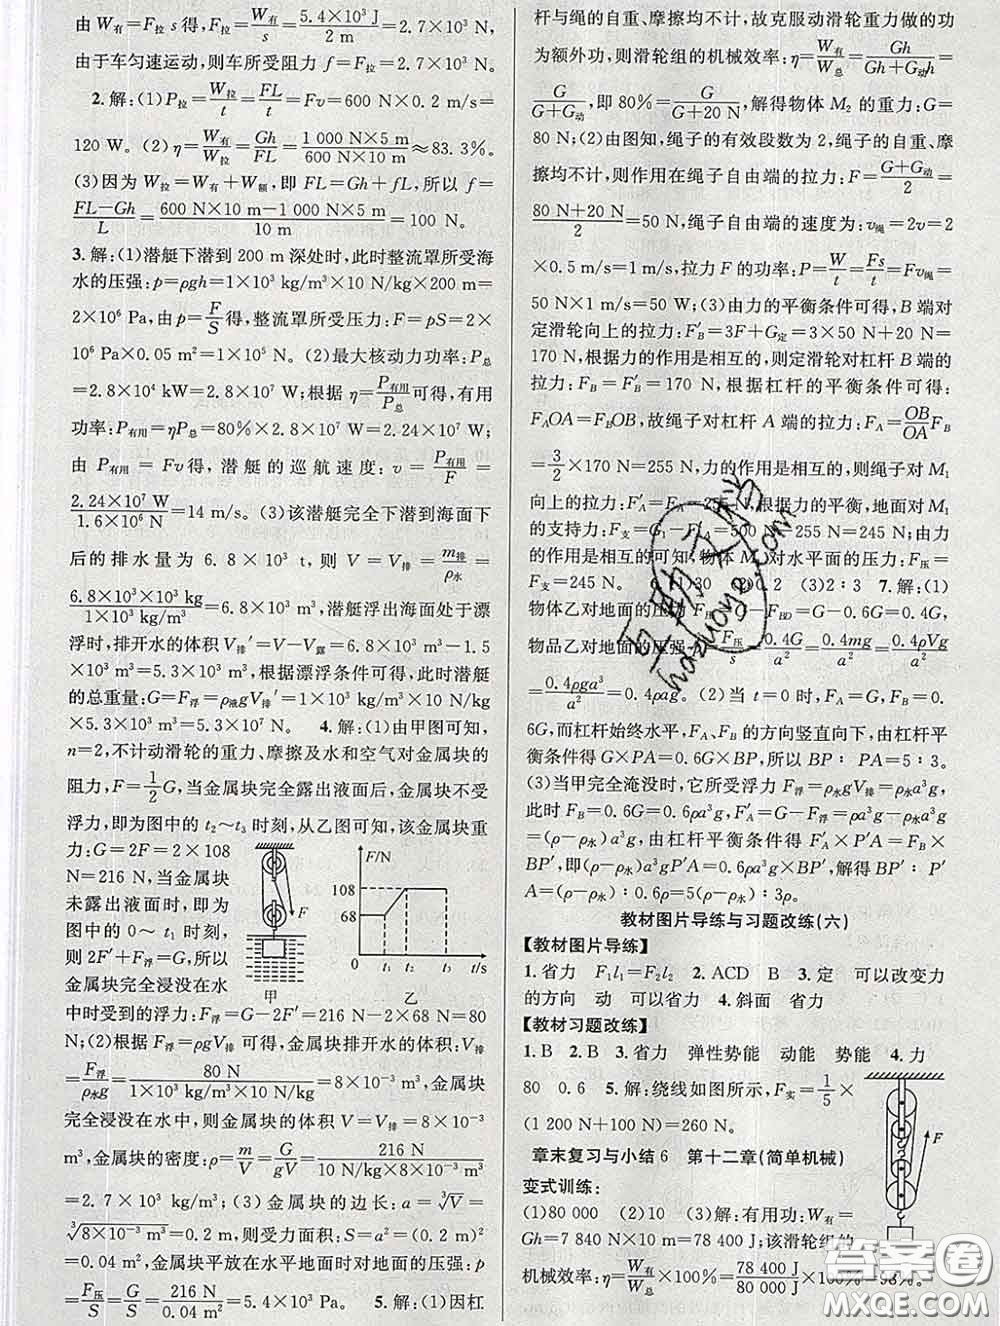 由 W有=F拉 s 得, F拉=W有/s=5.4×10³ J/2 m=2.7×10³ N。
由于车匀速运动,则车所受阻力 f=F拉=2.7×10³ N。
2.解:(1)P拉=W拉/t=FL/t=Fv=600 N×0.2 m/s=
120 W。(2)η=W有/W拉=Gh/FL=1 000 N×5 m/600 N×10 m≈83.3%。
(3)因为 W拉=W有+W额,即 FL=Gh+fL,所以 f=
FL-Gh/L=600 N×10 m-1 000 N×5 m/10 m=100 N。
3.解:(1)潜艇下潜到 200 m 深处时,此时整流罩所受海
水的压强:p=ρgh=1×10³ kg/m³×10 N/kg×200 m=
2×10⁶ Pa,由 p=F/S得,整流罩所受压力:F=pS=2×
10⁶ Pa×0.05 m²=1×10⁵ N。(2)最大核动力功率:P总
=2.8×10⁴ kW=2.8×10⁷ W;根据 η=P有用/P总可得,有用
功率:P有用=ηP总=80%×2.8×10⁷ W=2.24×10⁷ W;
由 P有用=Fv得,潜艇的巡航速度:v=P有用/F=
2.24×10⁷ W/1.6×10⁶ N=14 m/s。(3)该潜艇完全下潜到海面下
后的排水量为 6.8×10³ t,则 V=V排=m排/ρ水=
6.8×10³×10³ kg/1×10³ kg/m³=6.8×10³ m³,潜艇浮出海面处于漂
浮时,排开水的体积 V排′=V-V露=6.8×10³ m³-1.5
×10³ m³=5.3×10³ m³,根据漂浮条件可得,此时潜艇
的总重量:G=F浮=ρ液gV排′=1×10³ kg/m³×10 N/kg
×5.3×10³ m³=5.3×10⁷ N。 4.解:(1)由甲图可知,
n=2,不计动滑轮的重力、摩擦及水和空气对金属块的
阻力,F=1/2G,当金属块完全露出液面后,金属块不受
浮力,即为图中的 t₂~t₃ 时刻,从乙图可知,该金属块重
力:G=2F=2×108
N=216 N,当金属块
未露出液面时,即为
图中的 0~t₁ 时刻,
则 2F′+F浮=G,所以
金属块完全浸没在水
F/N
108
68
0 t₁ t₂ t₃ t/s
甲 乙
中时受到的浮力:F浮=G-2F′=216 N-2×68 N=80
N;(2)根据 F浮=ρgV排可得,金属块排开水的体积:V排
=F浮/ρ水g=80 N/1×10³ kg/m³×10 N/kg=8×10⁻³ m³,金属块
完全浸没在水中,则金属块的体积 V=V排=8×10⁻³
m³,金属块的密度:ρ=m/V=G/gV=216 N/10 N/kg×8×10⁻³ m³
=2.7×10³ kg/m³;(3)金属块的边长:a=∛V=
∛8×10⁻³ m³=0.2 m,则受力面积:S=a²=(0.2 m)²
=0.04 m²,金属块平放在水平地面时对地面的压强:p
=F/S=G/S=216 N/0.04 m²=5.4×10³ Pa。 5.解:(1)因杠
杆与绳的自重、摩擦均不计,故克服动滑轮重力做的功
为额外功,则滑轮组的机械效率:η=W有/W总=Gh/Gh+G动h=
G/G+G动,即 80%=G/G+20 N,解得物体 M₂ 的重力:G=
80 N;(2)由图知,绳子的有效段数为 2,绳子的自重、摩
擦均不计,则作用在绳子自由端的拉力:F=G+G动/2=
80 N+20 N/2=50 N,绳子自由端的速度为:v绳=2v=2
×0.5 m/s=1 m/s,拉力 F 的功率:P=W/t=Fs/t=Fv绳=
50 N×1 m/s=50 W;(3)由力的平衡条件可得,B 端对
定滑轮向上的拉力:F′B=3F+G定=3×50 N+20 N=
170 N,根据力的作用是相互的,则定滑轮对杠杆 B 端的
拉力:FB=F′B=170 N,根据杠杆的平衡条件可得:
FAOA=FBOB,故绳子对杠杆 A 端的拉力:FA=OB/OA FB
=3/2×170 N=255 N,力的作用是相互的,则绳子对 M₁
向上的拉力:F′A=FA=255 N,根据力的平衡,地面对 M₁
的支持力:F支=G₁-F′A=500 N-255 N=245 N;由力
的作用是相互的可知,物体 M₁ 对水平面的压力:F压=
F支=245 N。 6.(1)30 (2)0.2 (3)2∶3 7.解:(1)
物体乙对地面的压力 F压=G-F=G-0.6G=0.4G,
物品乙对地面的压强 p=F压/s=0.4G/a²=0.4mg/a²=0.4ρVg/a²
=0.4ρga³/a²=0.4ρag。(2)当 t=0 时,FA=G,FB=0.
6G,而杠杆始终水平,FA、FB 的方向竖直向下,由杠杆平
衡条件得 G×PA=0.6G×BP,所以 BP∶PA=5∶3。
(3)当甲完全淹没时,它所受浮力 F浮=ρ水gV排=ρ水a³g,
此时 FB=0.6G=0.6ρa³g,F′A=G-F浮=ρa³g-ρ水a³g
=(ρ-ρ水)a³g;由杠杆平衡条件得 F′A×P′A=FB×
BP′,即(ρ-ρ水)a³gP′A=0.6ρa³g×BP′,解得 BP′∶P′A
=(ρ-ρ水)∶0.6ρ=5(ρ-ρ水)∶3ρ。
教材图片导练与习题改练(六)
【教材图片导练】
1.省力 F₁l₁=F₂l₂ 2.ACD B 3.定 可以改变力
的方向 动 可以省力 4.斜面 省力
【教材习题改练】
1.B 2.B 3.省力 弹性势能 动能 势能 4.力
80 0.6 5.解:绕线如图所示,F实=1/5×
(1 200 N+100 N)=260 N。
F
章末复习与小结 6 第十二章(简单机械)
变式训练:
(1)80 000 (2)10 (3)解:有用功:W有=
Gh=7 840 N×10 m=78 400 J;该滑轮组的
机械效率:η=W有/W总×100%=78 400 J/80 000 J×100%=98%。
答案圈
MXQE.COM